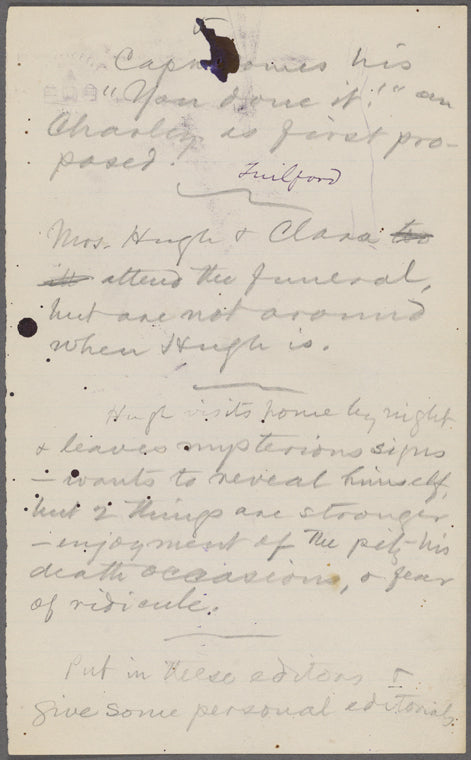 Capn comes his
"You done it!" on
Charley as first pro-
posed.
Guilford
Mrs. Hugh & Clara too
ill attend the funeral,
but are not around
when Hugh is.
Hugh visits home by night
& leaves mysterious signs
— wants to reveal himself,
but 2 things are stronger
— enjoyment of the pity his
death occasions, & fear
of ridicule.
Put in these editors &
give some personal editorials.